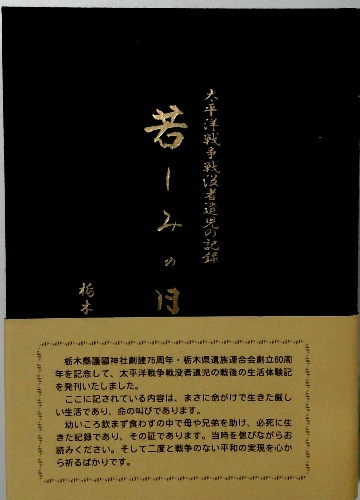 太平洋戦争戦没者遺児の記録
苦しみの日
栃木
栃木縣護國神社創建75周年・栃木県遺族連合会創立60周
年を記念して、太平洋戦争戦没者遺児の戦後の生活体験記
を発刊いたしました。
ここに記されている内容は、まさに命がけで生きた厳し
い生活であり、命の叫びであります。
幼いころ飲まず食わずの中で母や兄弟を助け、必死に生
きた記録であり、その証であります。当時を偲びながらお
読みください。そして二度と戦争のない平和の実現を心か
ら祈るばかりです。